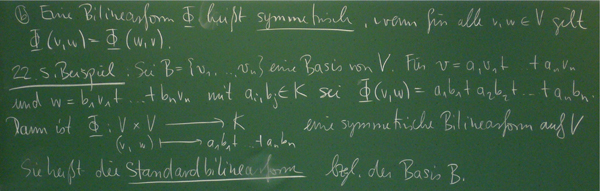 ⓑ Eine Bilinearform Φ heißt symmetrisch, wenn für alle v, w ∈ V gilt
Φ (v, w) = Φ (w, v).
22.5. Beispiel. Sei B = {v₁, ..., vₙ} eine Basis von V. Für v = a₁v₁ + ... + aₙvₙ
und w = b₁v₁ + ... + bₙvₙ mit aᵢ, bⱼ ∈ K sei Φ(v, w) = a₁b₁ + a₂b₂ + ... + aₙbₙ.
Dann ist Φ : V × V → K eine symmetrische Bilinearform auf V
(v, w) ↦ a₁b₁ + ... + aₙbₙ
Sie heißt die Standardbilinearform bzgl. der Basis B.